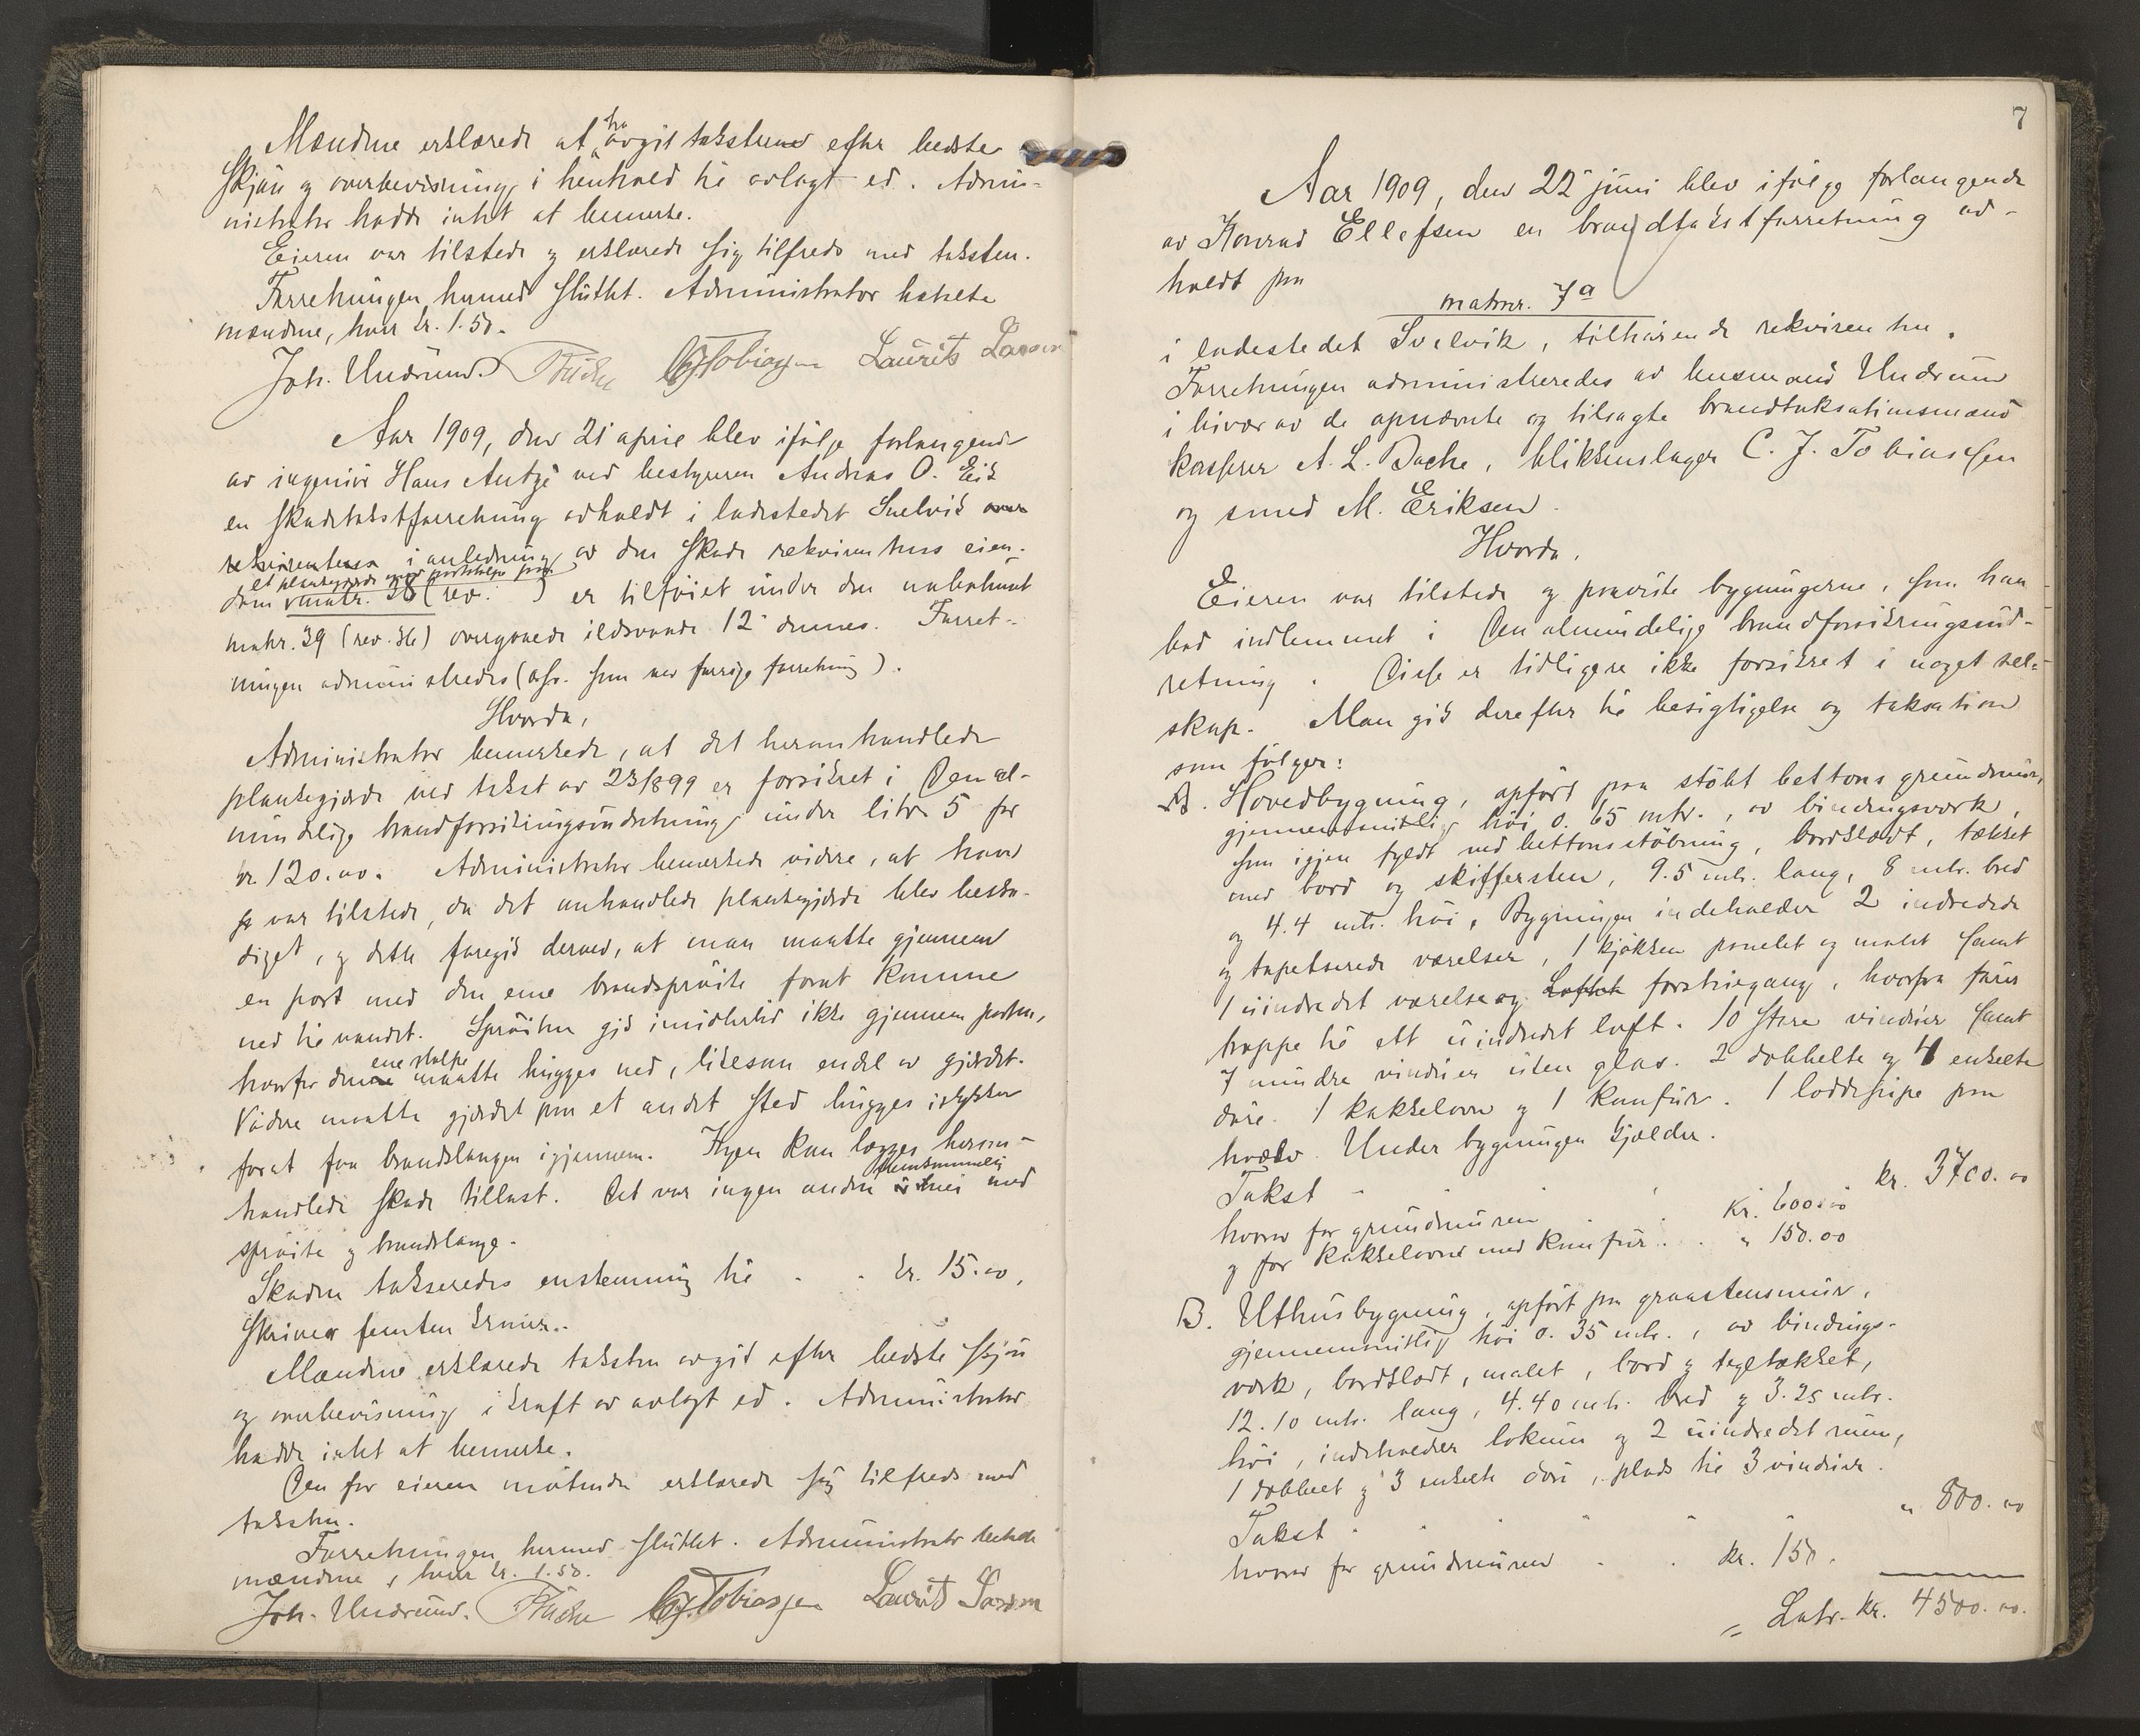 Mændene erklærede at ha avgit taksterne efter bedste
skjøn og overbevisning i henhold til avlagt ed. Admi-
nistrator hadde intet at bemerke.
Eieren var tilstede og erklærede sig tilfreds med taksten.
Forretningen hermed sluttet. Administrator betalte
mændene, hver kr. 1.50.
Joh. Undrum. C.J. Tobiassen Laurits Larsen
Aar 1909, den 21 april blev ifølge forlangende
av ingeniør Hans ved bestyreren Andreas O. Eik
en skadetakstforretning avholdt i ladestedet Svelvik over
rekvirentens i anledning av den skade rekvirentens eien-
et plankegjerde med portstolpe paa
dom matr. 38 (rev. ) er tilføiet under den ubebolinet
matr. 39 (rev. 36) overgaaede ildsvaade 12 dennes. Forret-
ningen administredes (osv. som ved forrige forretning).
Hvorda,
Administrator bemerkede, at det heromhandlede
plankegjerde ved takst av 23/8 99 er forsikret i Den al-
mindelige brandforsikringsindretning under litr 5 for
kr. 120.00. Administrator bemerkede videre, at han
var tilstede, da det omhandlede plankegjerde blev beska-
diget, og dette foregik derved, at man maatte gjennem
en port med den ene brandsprøite forat komme
ned til vandet. Sprøiten gik imidlertid ikke gjennem porten,
hvorfor den ene stolpe maatte hugges ned, likesom endel av gjerdet.
Videre maatte gjerdet paa et andet sted hugges istykker
forat faa brandslangen igjennem. Ingen kan lægges herom-
handlede skade tillast. Det var ingen anden fremkommelig vei med
sprøite og brandslange.
Skaden takseredes enstemmig til - - kr. 15.00,
skriver femten kroner.
Mændene erklærede taksten avgit efter bedste skjøn
og overbevisning i kraft av avlagt ed. Administrator
hadde intet at bemerke.
Den for eieren møtende erklærede sig tilfreds med
taksten.
Forretningen hermed sluttet. Administrator betalte
mændene, hver kr. 1.50.
Joh. Undrum. C.J. Tobiassen Laurits Larsen
7
Aar 1909, den 22 juni blev ifølge forlangende
av Konrad Ellefsen en brandtakstforretning av-
holdt paa
matrnr. 7a
i ladestedet Svelvik, tilhørende rekvirenten.
Forretningen administreredes av lensmand Undrum
i hivær av de opnævnte og tilsagte brandtaksationsmænd
kasserer A. L. Bache, blikkenslager C. J. Tobiassen
og smed M. Eriksen.
Hvorda,
Eieren var tilstede og paaviste bygningerne, som han
bad indlemmet i Den almindelige brandforsikringsind-
retning. Disse er tidligere ikke forsikret i noget sel-
skap. Man gik derefter til besigtigelse og taksation
som følger:
A. Hovedbygning, opført paa støbt bettons grundmur,
gjennemsnitlig høi 0.65 mtr., av bindingsverk,
som igjen fyldt med bettonsstøbning, bordklædt, tækket
med bord og skiffersten, 9.5 mtr. lang, 8 mtr. bred
og 4.4 mtr. høi. Bygningen indeholder 2 indredede
og tapetserede værelser, 1 kjøkken panelet og malet samt
1 uindredet værelse og Loftet forstuegang, hvorfra fører
trappe til ett uindredet loft. 10 store vinduer samt
7 mindre vinduer uten glas. 2 dobbelte og 4 enkelte
døre. 1 kakkelovn og 1 komfur. 1 loddepipe paa
hvælv. Under bygningen kjælder.
Takst - - - kr. 3700.00
hvorav for grundmuren - kr. 600.00
og for kakkelovne med komfur . . " 150.00
B. Uthusbygning, opført paa graastensmur,
gjennemsnitlig høi 0.35 mtr., av bindings-
verk, bordklædt, malet, bord og tegltækket,
12.10 mtr. lang, 4.40 mtr. bred og 3.25 mtr.
høi, indeholder lokum og 2 uindredet rum,
1 dobbelt og 3 enkelte døre, plads til 3 vinduer.
Takst - - - - - " 800.00
hvorav for grundmuren - . kr. 150.
= Latr. kr. 4500.00.